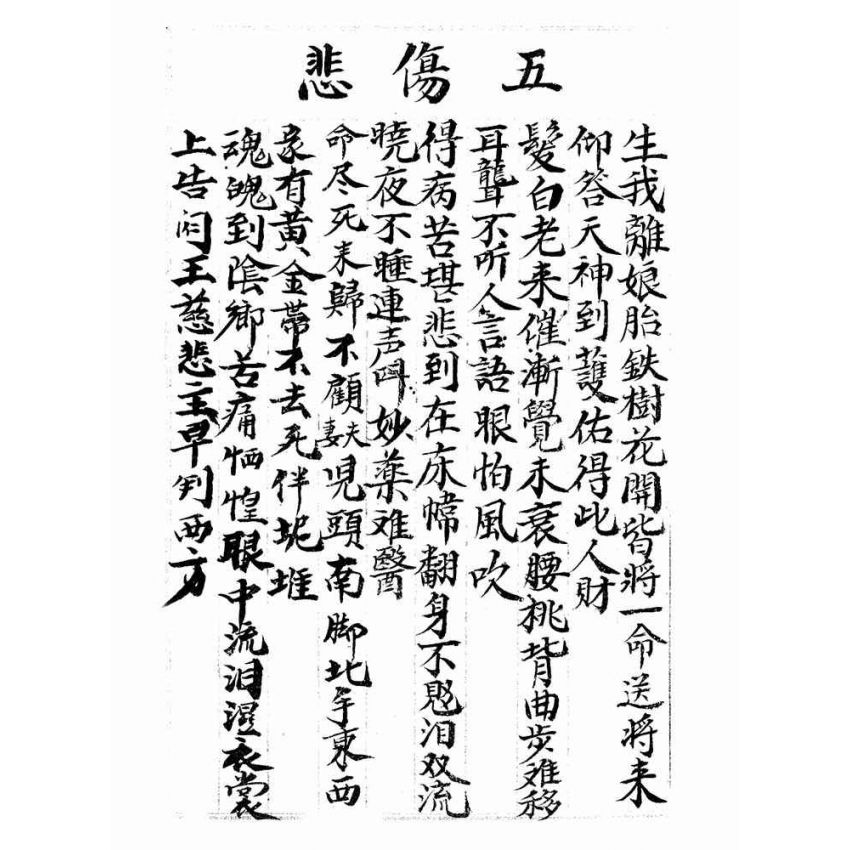 五傷悲
生我離娘胎鉄樹花開皆將一命送將来
仰答天神到護佑得此人財
髮白老来催漸覺未衰腰桃背曲步难移
耳聾不听人言語眼怕風吹
得病苦堪悲到在床幃翻身不起泪双流
曉夜不睡連声叫妙薬难醫
命尽死来歸不顧夫妻児頭南脚北手東西
衆有黃金帶不去死伴坭堆
魂魄到陰鄉苦痛恓惶眼中流泪濕衣裳
上告閆王慈悲主早判西方